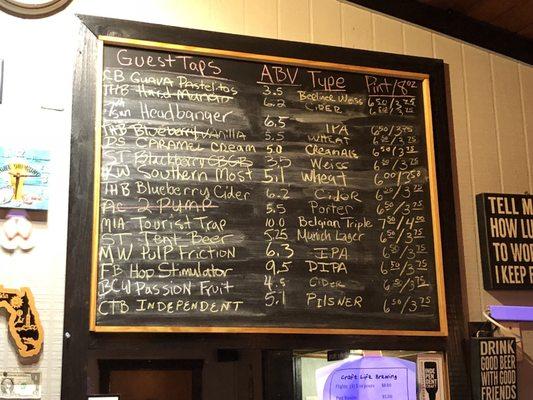 Guest Taps ABV Type Pint/8oz
CB Guava Pastelitos 3.5 Berliner Weiss 6.50/3.75
THB Hard Mango 6.2 CIDER 6.50/3.75
Headbanger 6.5 IPA 6.50/3.75
THB Blueberry Vanilla 5.5 WHEAT 6.50/3.75
DS CARAMEL CREAM 5.0 CreamAle 6.50/3.75
ST Blackberry CBGB 3.5 Weiss 6.50/3.75
KW Southern Most 5.1 Wheat 6.00/3.50
THB Blueberry Cider 6.2 CIDER 6.50/3.75
AC 2 PUMP 5.5 Porter 6.50/3.75
MIA Tourist Trap 10.0 Belgian Triple 7.50/4.00
ST Tent Beer 5.25 Munich Lager 6.50/3.75
MW Pulp Friction 6.3 IPA 6.50/3.75
FB Hop Stimulator 9.5 DIPA 6.50/3.75
BCW Passion Fruit 4.5 CIDER 6.50/3.75
CTB INDEPENDENT 5.1 PILSNER 6.50/3.75
TELL M
HOW LU
TO WOR
I KEEP F
DRINK
GOOD BEER
WITH GOOD
FRIENDS
Craft Life Brewing
INDE
PEN
DENT